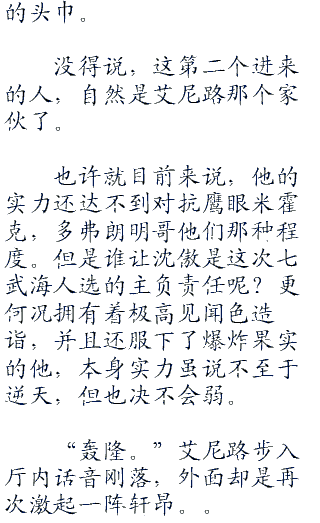 的头巾。
没得说，这第二个进来
的人，自然是艾尼路那个家
伙了。
也许就目前来说，他的
实力还达不到对抗鹰眼米霍
克，多弗朗明哥他们那种程
度。但是谁让沈傲是这次七
武海人选的主负责任呢？更
何况拥有着极高见闻色造
诣，并且还服下了爆炸果实
的他，本身实力虽说不至于
逆天，但也决不会弱。
“轰隆。”艾尼路步入
厅内话音刚落，外面却是再
次激起一阵轩昂。。